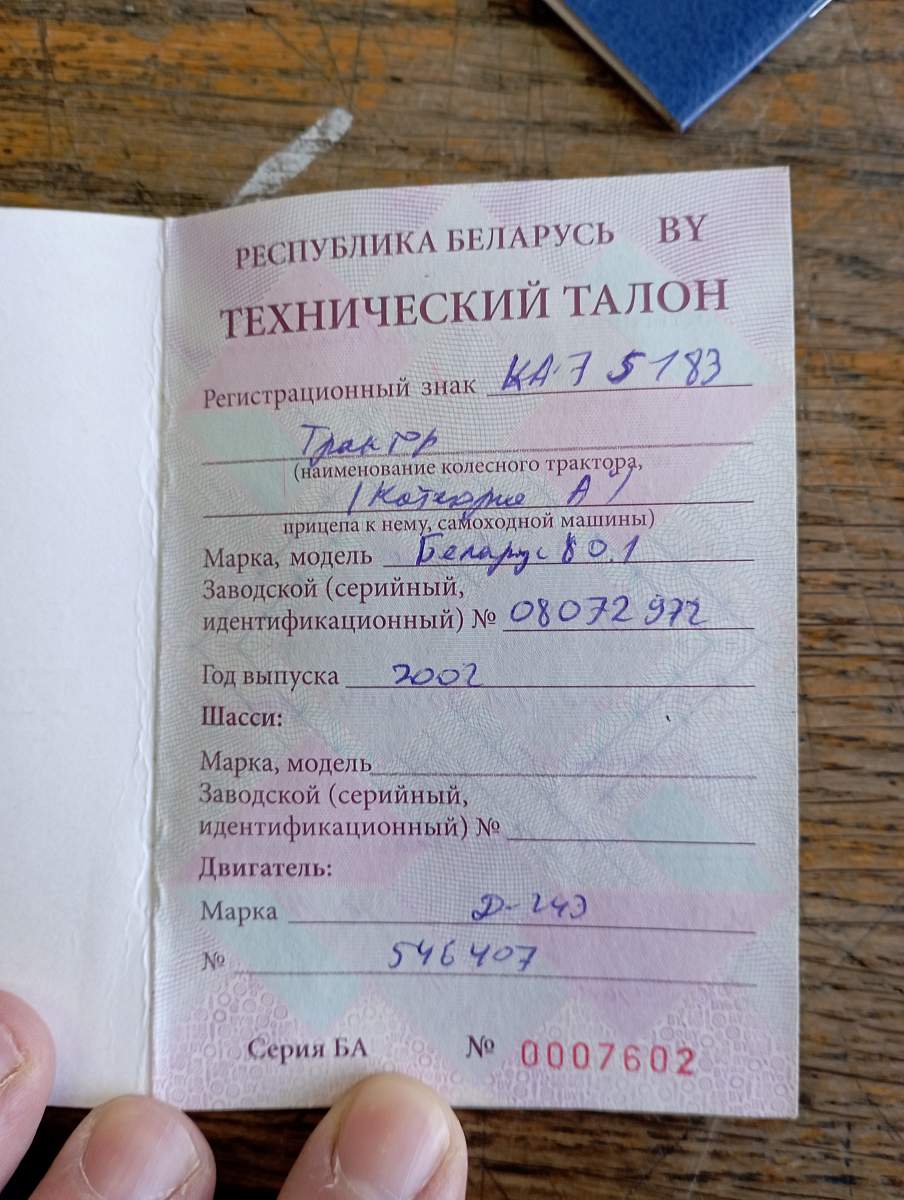 РЕСПУБЛИКА БЕЛАРУСЬ BY
ТЕХНИЧЕСКИЙ ТАЛОН
Регистрационный знак КА-7 5183
Трактор
(наименование колесного трактора,
(Категория А)
прицепа к нему, самоходной машины)
Марка, модель Беларус 80.1
Заводской (серийный,
идентификационный) № 08072972
Год выпуска 2002
Шасси:
Марка, модель
Заводской (серийный,
идентификационный) №
Двигатель:
Марка Д-243
№ 546407
Серия БА № 0007602